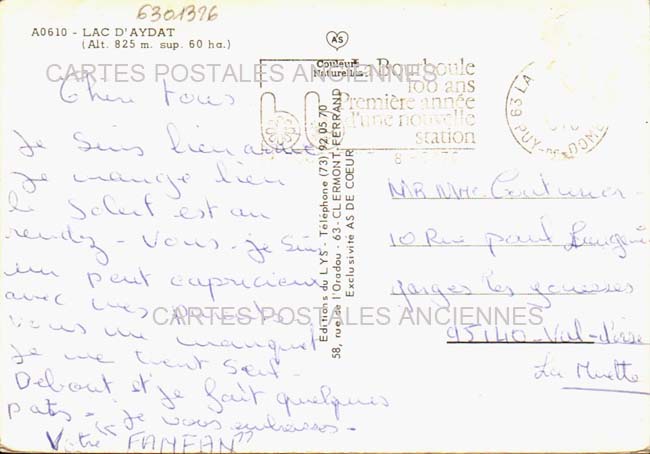 6301326
A0610 - LAC D'AYDAT
(Alt. 825 m. sup. 60 ha.)
AS
Couleurs
Naturelles
CARTES POSTALES ANCIENNES
Bourboule
100 ans
Première année
d'une nouvelle
station
63 LA
PUY-DE-DOME
Editions du LYS - Téléphone (73) 92 05 70
58, rue de l'Oradou - 63 - CLERMONT-FERRAND
Exclusivité AS DE COEUR
Chere tous
Je suis bien arrivé
Je mange bien
le Soleil est au
rendez - Vous - Je suis
un peut capricieux
avec mes parents
vous me manquet
Je me tient Seul
Debout et je fait quelques
pates - Je vous embrasse -
Votre "FANFAN"
MR MMe Couturier
10 Rue paul
garges les gonesses
95140 - Val-d'oise
La Muette
CARTES POSTALES ANCIENNES